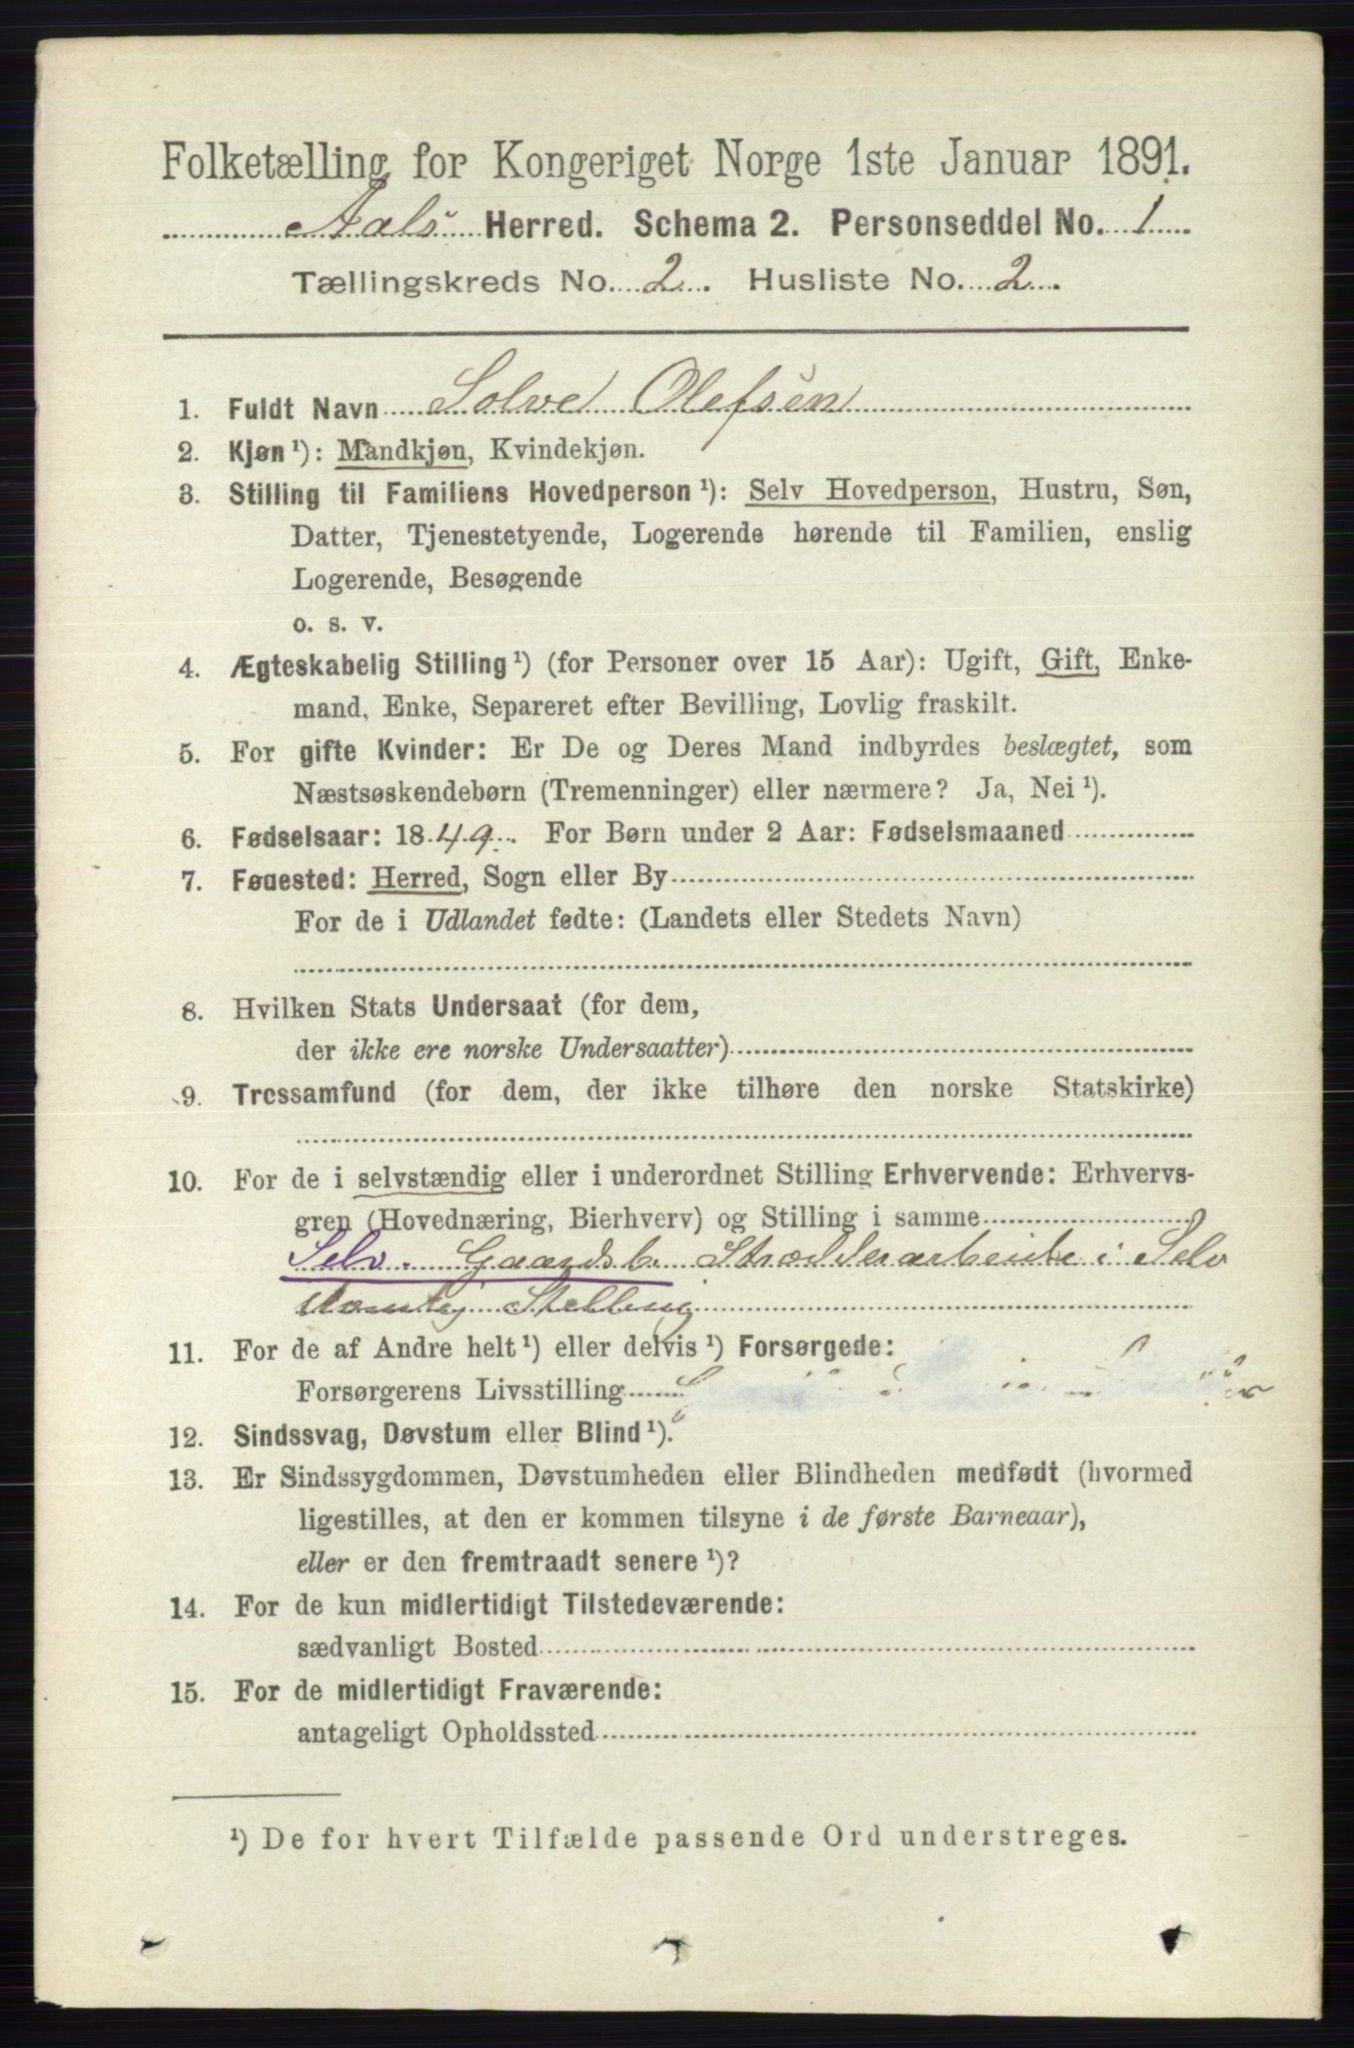 Folketælling for Kongeriget Norge 1ste Januar 1891.
Aals Herred. Schema 2. Personseddel No. 1
Tællingskreds No. 2. Husliste No. 2.
1. Fuldt Navn Solve Olefsen
2. Kjøn ¹): Mandkjøn, Kvindekjøn.
3. Stilling til Familiens Hovedperson ¹): Selv Hovedperson, Hustru, Søn,
Datter, Tjenestetyende, Logerende hørende til Familien, enslig
Logerende, Besøgende
o. s. v.
4. Ægteskabelig Stilling ¹) (for Personer over 15 Aar): Ugift, Gift, Enke-
mand, Enke, Separeret efter Bevilling, Lovlig fraskilt.
5. For gifte Kvinder: Er De og Deres Mand indbyrdes beslægtet, som
Næstsøskendebørn (Tremenninger) eller nærmere? Ja, Nei ¹).
6. Fødselsaar: 1849. For Børn under 2 Aar: Fødselsmaaned
7. Fødested: Herred, Sogn eller By
For de i Udlandet fødte: (Landets eller Stedets Navn)
8. Hvilken Stats Undersaat (for dem,
der ikke ere norske Undersaatter)
9. Trossamfund (for dem, der ikke tilhøre den norske Statskirke)
10. For de i selvstændig eller i underordnet Stilling Erhvervende: Erhvervs-
gren (Hovednæring, Bierhverv) og Stilling i samme
Selv. Gaardsb. i Selv
Stilling
11. For de af Andre helt ¹) eller delvis ¹) Forsørgede:
Forsørgerens Livsstilling
12. Sindssvag, Døvstum eller Blind ¹).
13. Er Sindssygdommen, Døvstumheden eller Blindheden medfødt (hvormed
ligestilles, at den er kommen tilsyne i de første Barneaar),
eller er den fremtraadt senere ¹)?
14. For de kun midlertidigt Tilstedeværende:
sædvanligt Bosted
15. For de midlertidigt Fraværende:
antageligt Opholdssted
¹) De for hvert Tilfælde passende Ord understreges.